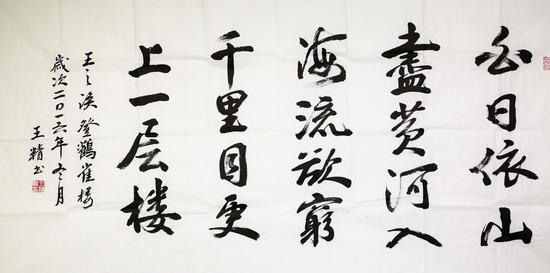 白日依山
盡黄河入
海流欲窮
千里目更
上一层楼
王之涣登鶴雀楼
歲次二〇一六年冬月
王精书